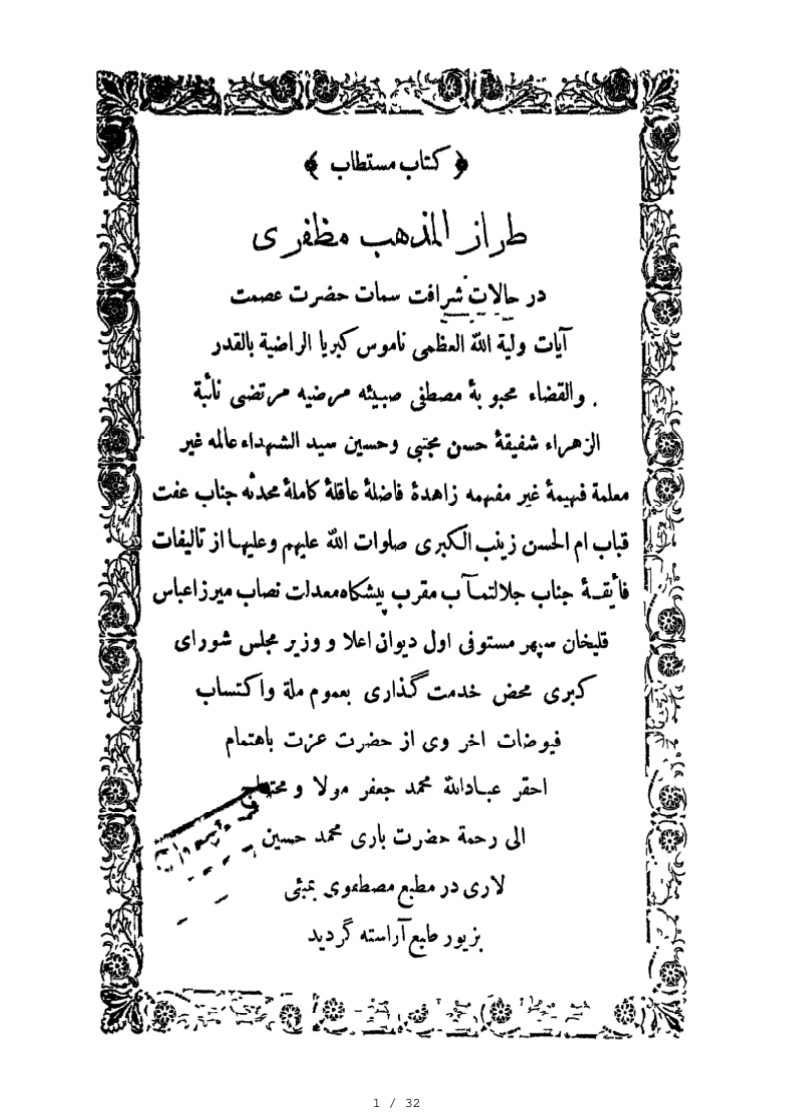 ﴿ كتاب مستطاب ﴾
طراز المذهب مظفری
در حالات شرافت سمات حضرت عصمت
آيات ولية الله العظمى ناموس كبريا الراضية بالقدر
والقضاء محبوبۀ مصطفى صبيئه مرضيه مرتضى نائبة
الزهراء شفيقۀ حسن مجتبى وحسين سيد الشهداء عالمه غير
معلمة فهيمۀ غير مفهمه زاهدۀ فاضلۀ عاقلۀ كاملۀ محدثه جناب عفت
قباب ام الحسن زينب الكبرى صلوات الله عليهم وعليها از تاليفات
فائيقۀ جناب جلالتمآب مقرب پيشكاه معدلت نصاب ميرزا عباس
قليخان سپهر مستوفى اول ديوانى اعلا و وزير مجلس شوراى
كبرى محض خدمت گذارى بعموم ملة واكتساب
فيوضات اخروى از حضرت عزت باهتمام
احقر عبادالله محمد جعفر مولا و محتاج
الى رحمة حضرت بارى محمد حسين
لارى در مطبع مصطفوى بمبئى
بزيور طبع آراسته گرديد
1 / 32